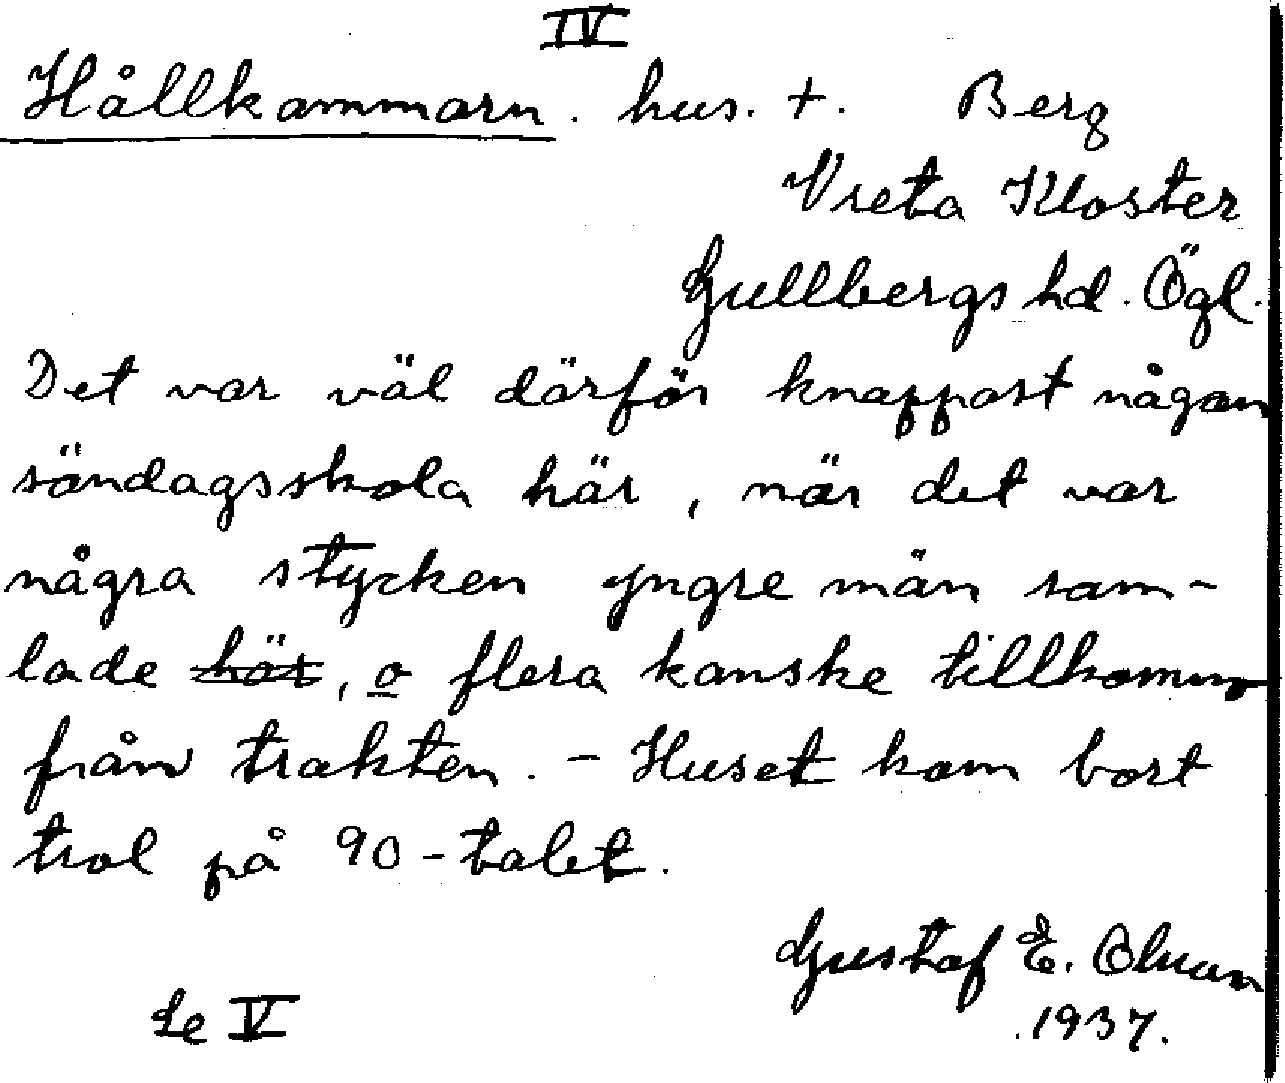 IV
Hållkammarn. hus. +. Berg
Vreta Kloster
Gullbergs hd. Ögl.
Det var väl därför knappast någon
söndagsskola här, när det var
några stycken yngre män sam-
lade här, o flera kanske tillkommo
från trakten. - Huset kom bort
trol på 90-talet.
Gustaf E.
1937.
Se V